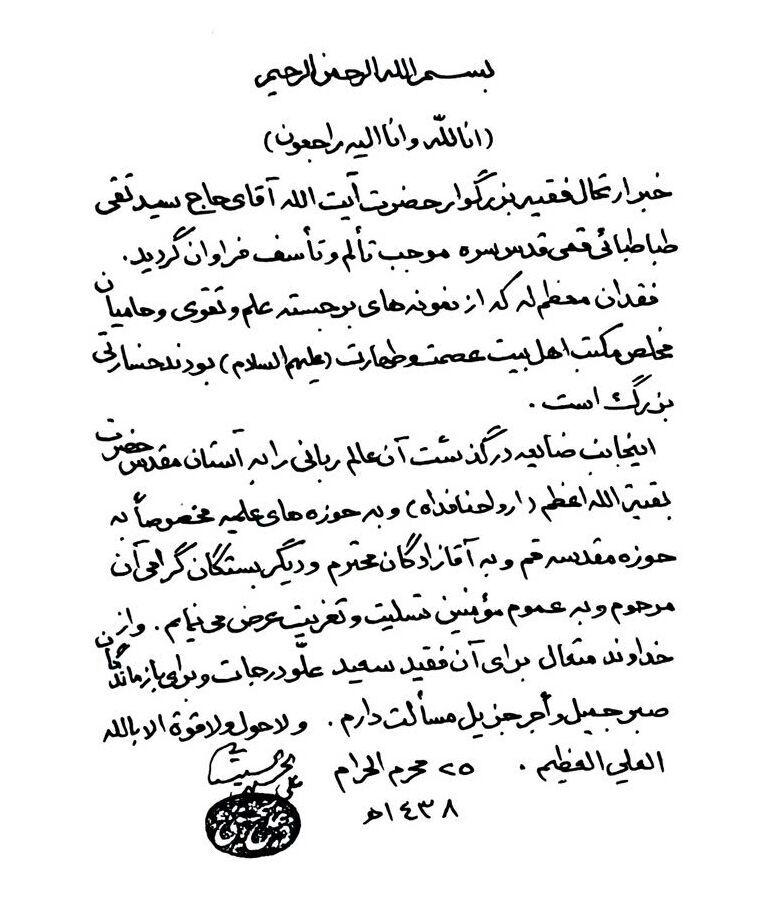 بسم الله الرحمن الرحیم
(انا لله و انا الیه راجعون)
خبر ارتحال فقیه بزرگوار حضرت آیت الله آقای حاج سید تقی
طباطبائی قمی قدس سره موجب تألم و تأسف فراوان گردید.
فقدان معظم له که از نمونه های برجسته علم و تقوی و حامیان
مخلص مکتب اهل بیت عصمت و طهارت (علیهم السلام) بودند خسارتی
بزرگ است.
اینجانب ضایعه درگذشت آن عالم ربانی را به آستان مقدس حضرت
بقیة الله اعظم (ارواحنا فداه) و به حوزه های علمیه مخصوصاً به
حوزه مقدسه قم و به آقازادگان محترم و دیگر بستگان گرامی آن
مرحوم و به عموم مؤمنین تسلیت و تعزیت عرض می نمایم. و از
خداوند متعال برای آن فقید سعید علوّ درجات و برای بازماندگان
صبر جمیل و أجر جزیل مسألت دارم. و لا حول و لا قوة الا بالله
العلي العظیم. ٢٥ محرم الحرام
١٤٣٨ه
علی الحسینی السیستانی